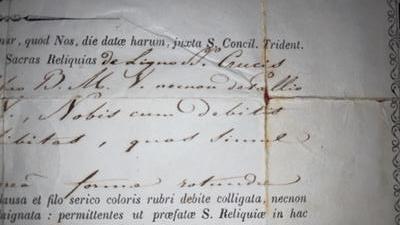 quod Nos, die datæ harum, juxta S. Concil. Trident.
Sacras Reliquias de Ligno Ss. Crucis
B. M. V. necnon de Pallio
Nobis cum debitis
quas simul
forma rotunda
ausa et filo serico coloris rubri debite colligata, necnon
signata : permittentes ut præfatæ S. Reliquiæ in hac